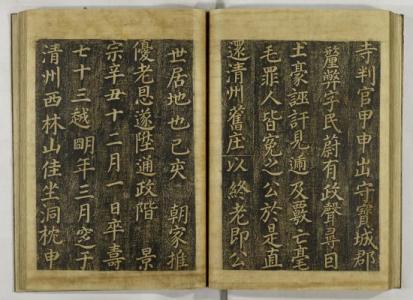 寺判官甲申出守寶城郡
釐弊字民蔚有政聲尋因
土豪誣訐見逮及覈亡毫
毛罪人皆冤之公於是直
還清州舊庄以終老即公
世居地也己亥 朝家推
優老恩遂陞通政階 景
宗辛丑十二月一日卒壽
七十三越明年三月窆于
清州西林山佳坐洞枕申